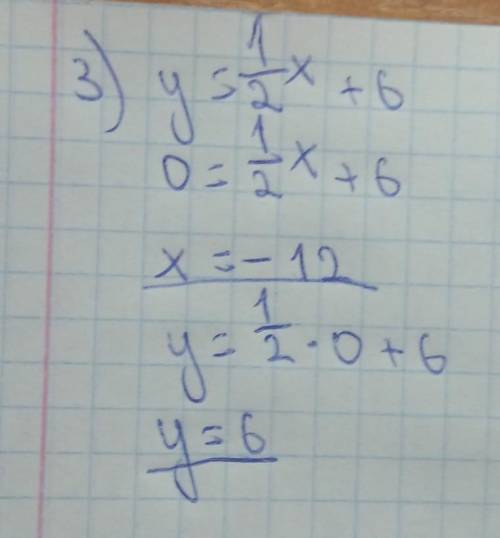 3) y = 1/2 x + 6
0 = 1/2 x + 6
x = - 12
y = 1/2 · 0 + 6
y = 6